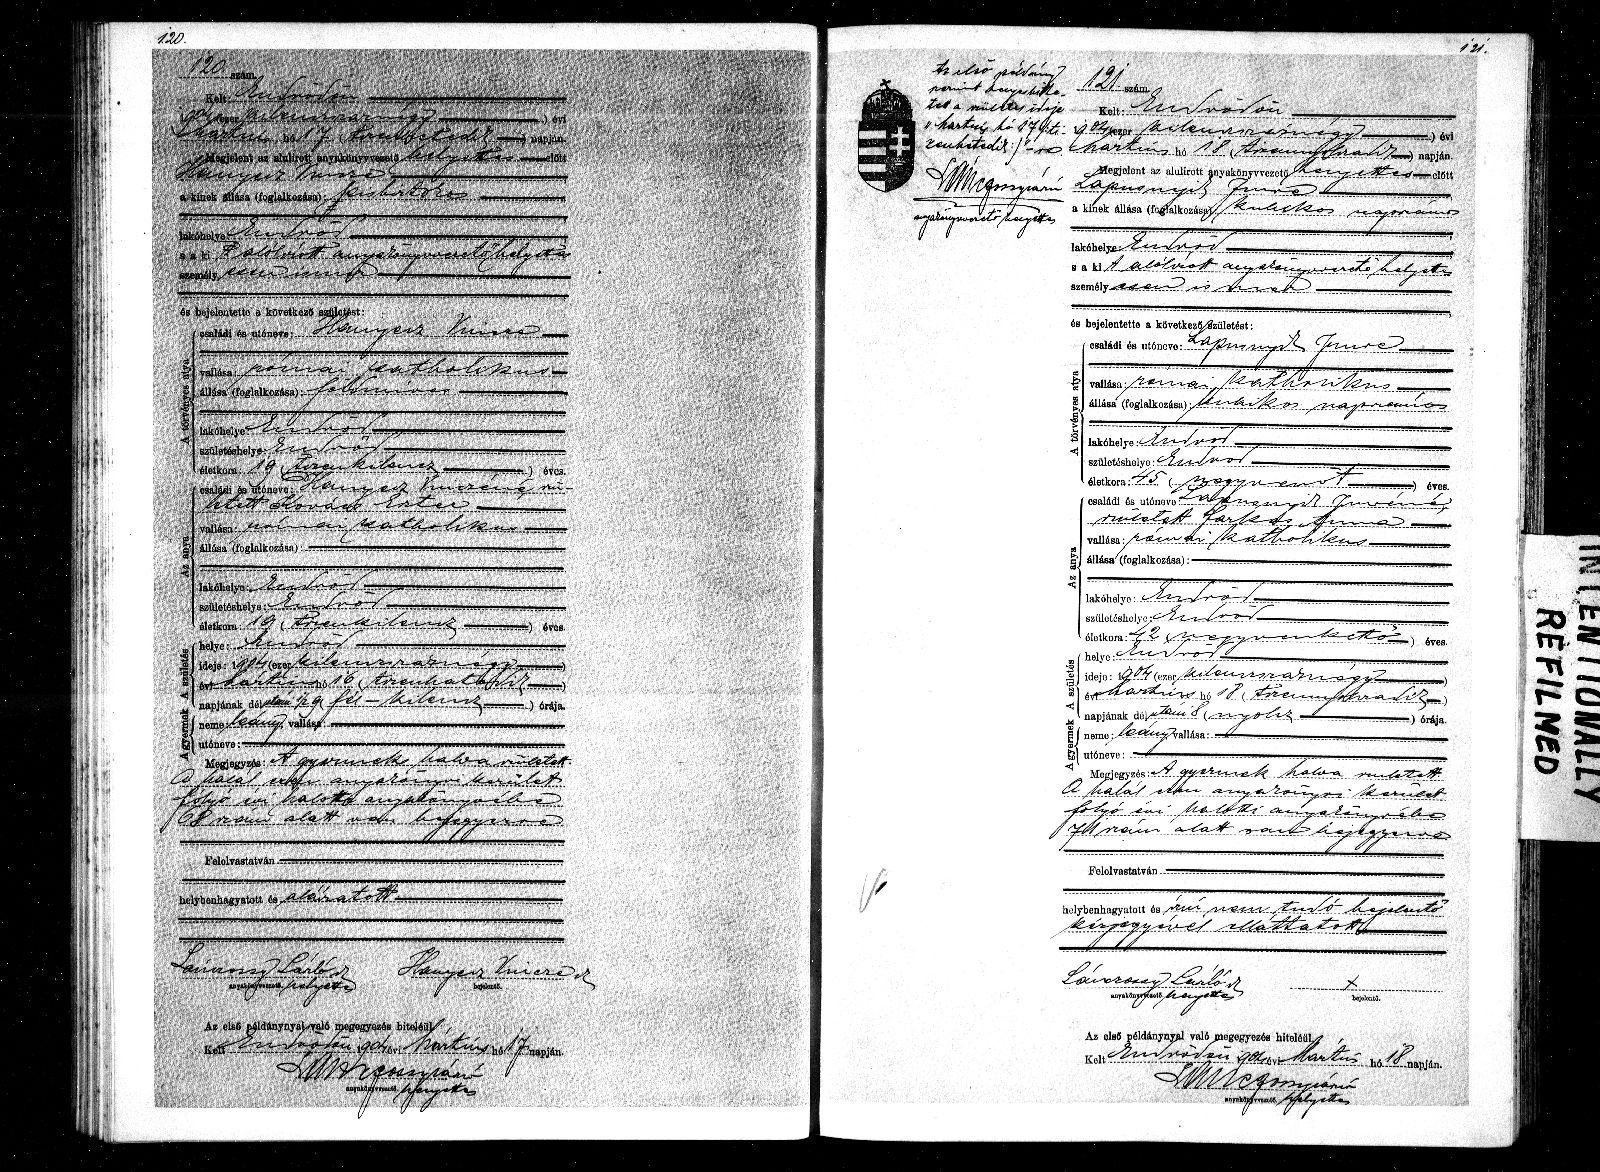 120.
120 szám.
Kelt: Endrődön
904 (ezer kilenczszáznégy) évi
Martius hó 17 (tizenhetedik) napján.
Megjelent az alulirott anyakönyvvezető helyettes előtt
Hanyecz Vincze
a kinek állása (foglalkozása): kisbirtokos
lakóhelye: Endrőd
s a ki t alólirott anyakönyvvezető helyettes
személyesen ismer
és bejelentette a következő születést:
A törvényes atya
családi és utóneve: Hanyecz Vincze
vallása: római katholikus
állása (foglalkozása): földmíves
lakóhelye: Endrőd
születéshelye: Endrőd
életkora: 19 (tizenkilencz) éves.
Az anya
családi és utóneve: Hanyecz Vinczéné szü-
letett Kovács Eszter
vallása: római katholikus
állása (foglalkozása):
lakóhelye: Endrőd
születéshelye: Endrőd
életkora: 19 (tizenkilencz) éves.
A gyermek A születés
helye: Endrőd
ideje: 1904 (ezer kilenczszáznégy)
évi Martius hó 16 (tizenhatodik)
napjának dél után 1/2 9 (fél-kilencz) órája.
neme: leány vallása:
utóneve:
Megjegyzés: A gyermek halva született
A halál ezen anyakönyvi kerület
folyó évi halotti anyakönyvébe
68 szám alatt van bejegyezve
Felolvastatván
helybenhagyatott és aláiratott
Hanyecz Vincze
anyakönyvvezető. helyettes bejelentő.
Az első példánynyal való megegyezés hiteléül.
Kelt Endrődön 904 évi Mártius hó 17 napján.
anyakönyvvezető. helyettes
121.
Az első példány
szerint helyesbitte-
tett a születés ideje
"Martius hó 17 (ti-
zenhetedik)"-re
anyakönyvvezető helyettes
121 szám.
Kelt: Endrődön
904 (ezer kilenczszáznégy) évi
Martius hó 18 (tizennyolczadik) napján.
Megjelent az alulirott anyakönyvvezető helyettes előtt
Lapusnyik Imre
a kinek állása (foglalkozása): kubikos napszámos
lakóhelye: Endrőd
s a ki t alólirott anyakönyvvezető helyettes
személyesen ismer
és bejelentette a következő születést:
A törvényes atya
családi és utóneve: Lapusnyik Imre
vallása: római katholikus
állása (foglalkozása): kubikos napszámos
lakóhelye: Endrőd
születéshelye: Endrőd
életkora: 45 (negyvenöt) éves.
Az anya
családi és utóneve: Lapusnyik Imréné,
született Farkas Anna
vallása: római katholikus
állása (foglalkozása):
lakóhelye: Endrőd
születéshelye: Endrőd
életkora: 42 (negyvenkettő) éves.
A gyermek A születés
helye: Endrőd
ideje: 904 (ezer kilenczszáznégy)
évi Martius hó 18 (tizennyolczadik)
napjának dél után 8 (nyolcz) órája.
neme: leány vallása:
utóneve:
Megjegyzés: A gyermek halva született
A halál ezen anyakönyvi kerület
folyó évi halotti anyakönyvébe
71 szám alatt van bejegyezve
Felolvastatván
helybenhagyatott és irni nem tudó bejelentő
kézjegyével elláttatott
x
anyakönyvvezető. helyettes bejelentő.
Az első példánynyal való megegyezés hiteléül.
Kelt Endrődön 904 évi Mártius hó 18 napján.
anyakönyvvezető. helyettes
INTENTIONALLY
REFILMED